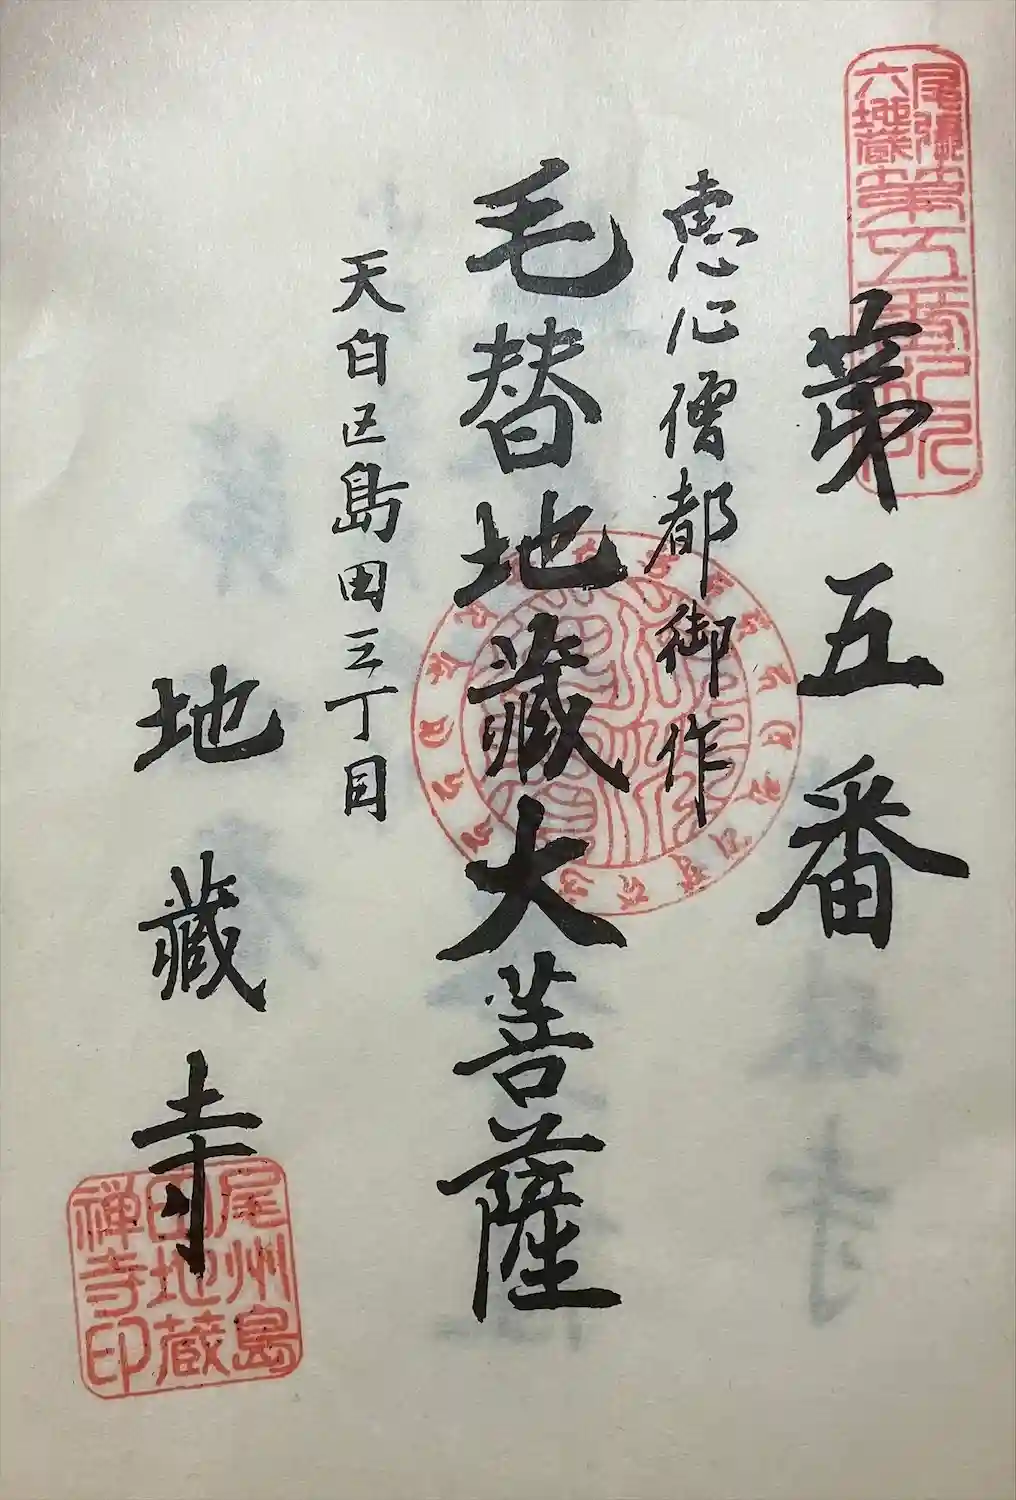 尾張
六地蔵
第五番札所
第五番
恵心僧都御作
毛替地蔵大菩薩
天白区島田三丁目
地蔵寺
尾州島
田地蔵
禅寺印